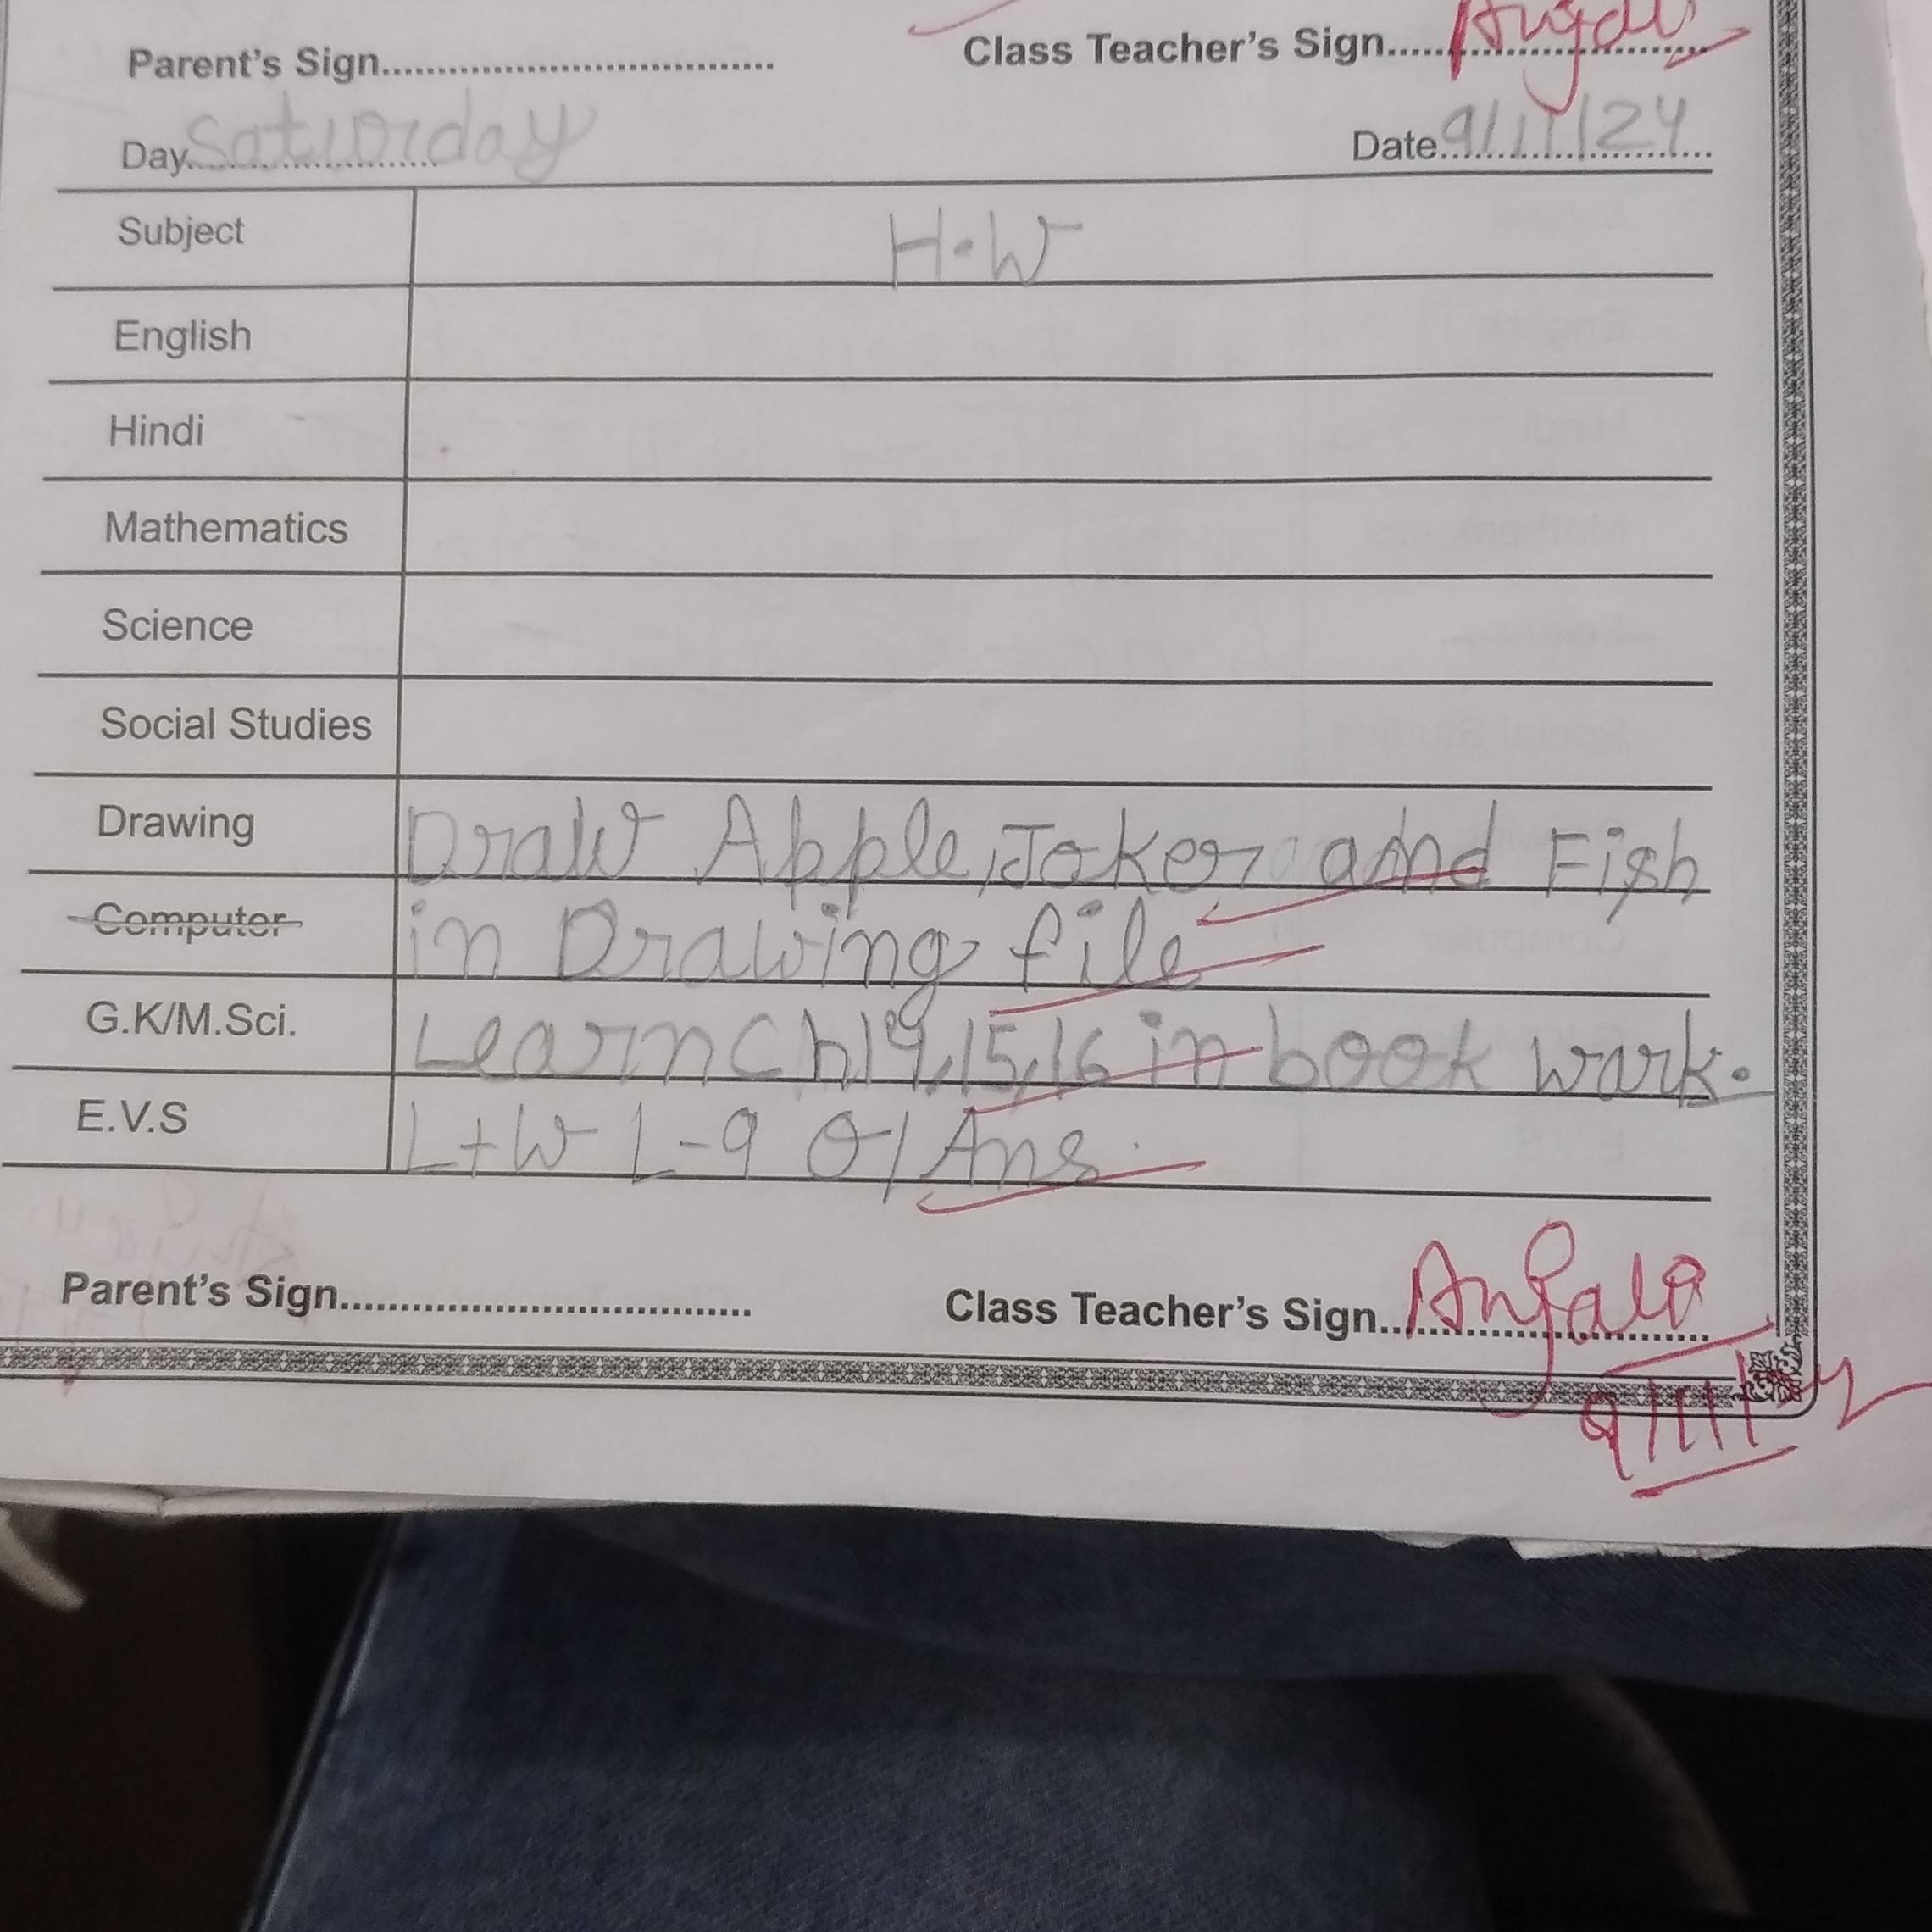 Parent's Sign.................................... Class Teacher's Sign......
Day Saturday Date 9/11/24
Subject H.W
English
Hindi
Mathematics
Science
Social Studies
Drawing Draw Apple, Joker and Fish
Computer in Drawing file
G.K/M.Sci. Learn Ch 14,15,16 in book work.
E.V.S L+W L-9 Q/Ans.
Parent's Sign.................................... Class Teacher's Sign... Anjali
9/11/24